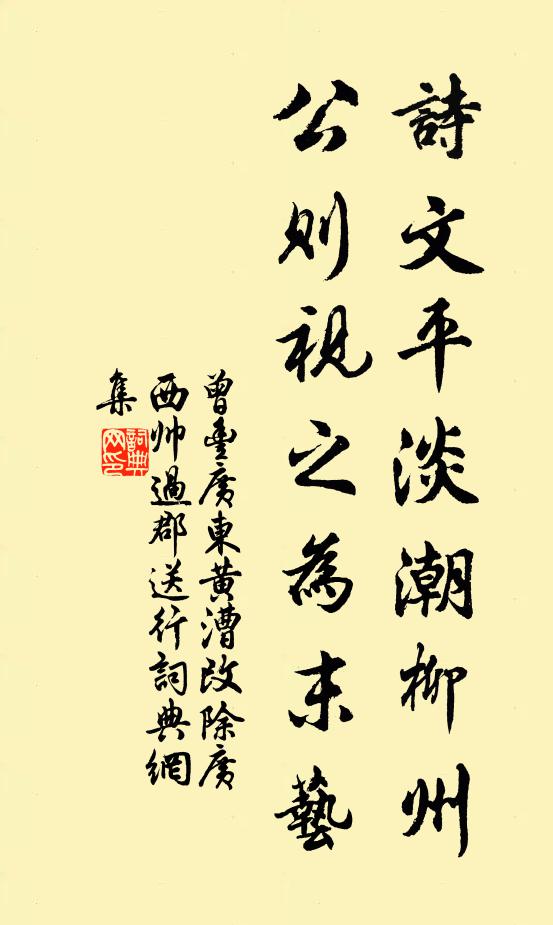 詩文平淡潮柳州
公則視之為末藝
曾豐廣東黃漕改除廣
西帥過郡送行詞典網
集
詞典網印